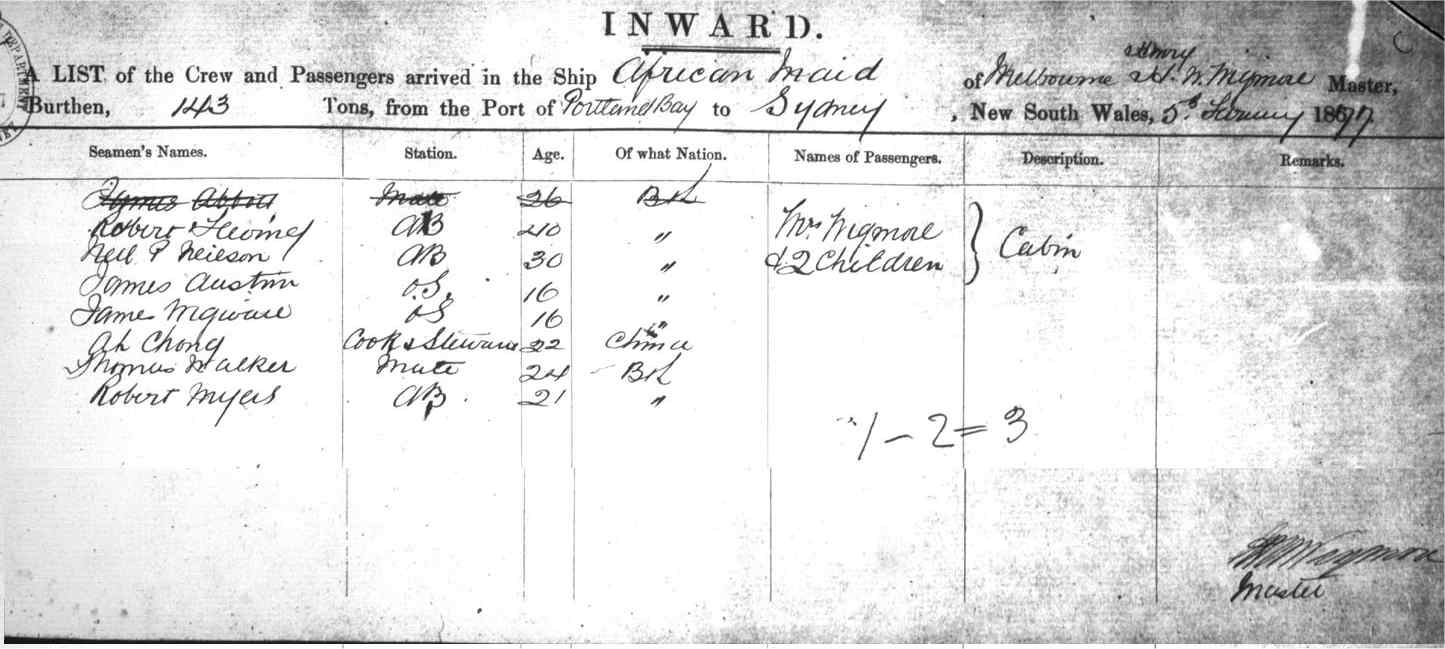 INWARD.
A LIST of the Crew and Passengers arrived in the Ship African Maid of Melbourne Henry W. Wigmore Master,
Burthen, 143 Tons, from the Port of Portland Bay to Sydney, New South Wales, 5th 1877
Seamen's Names. Station. Age. Of what Nation. Names of Passengers. Description. Remarks.
Abbott Mate 26 Bh
Robert AB 40 " Mrs Wigmore
Neil P Neilson AB 30 " & 2 Children } Cabin
James Austin O.S. 16 "
James OS 16 "
Ah Chong Cook & Steward 22 China
Thomas Walker Mate 24 Bh
Robert Myers AB 21 "
1 - 2 = 3
Wigmore
Master